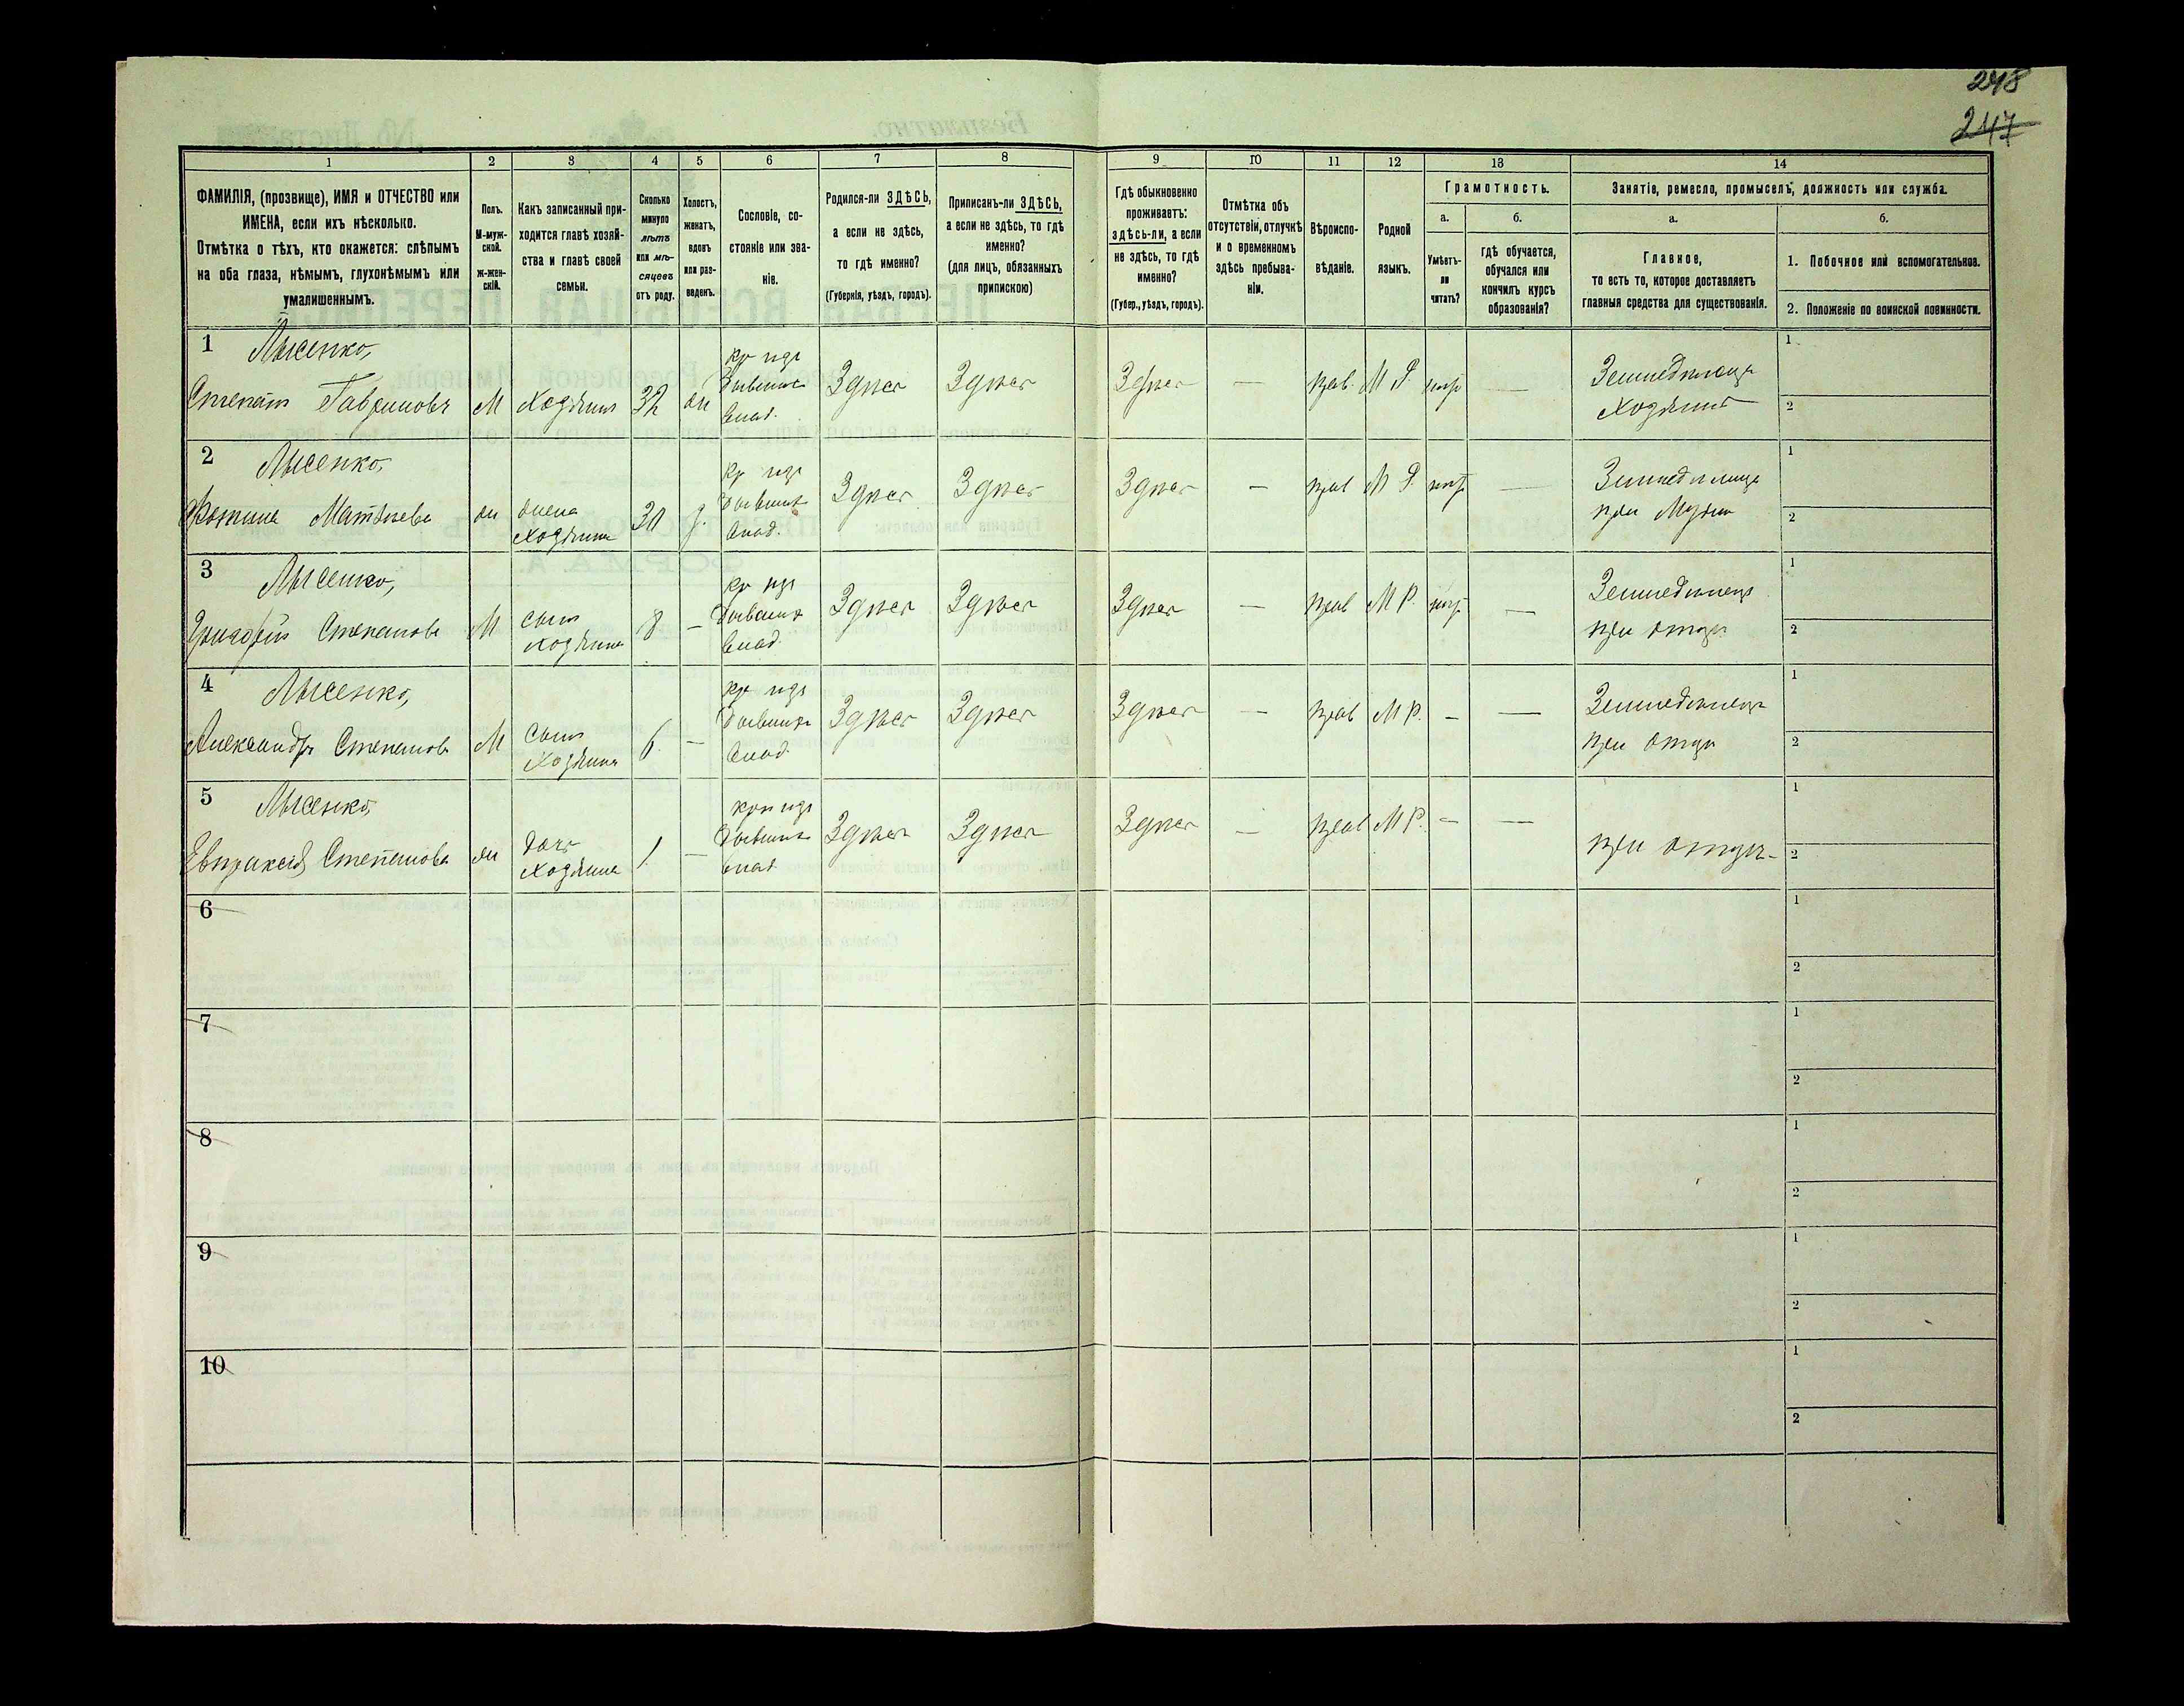 248
247
1
2
3
4
5
6
7
8
9
10
11
12
13
14
ФАМИЛІЯ, (прозвище), ИМЯ и ОТЧЕСТВО или
ИМЕНА, если ихъ нѣсколько.
Отмѣтка о тѣхъ, кто окажется: слѣпымъ
на оба глаза, нѣмымъ, глухонѣмымъ или
умалишеннымъ.
Полъ.
М-муж-
ской.
ж-жен-
скій.
Какъ записанный при-
ходится главѣ хозяй-
ства и главѣ своей
семьи.
Сколько
минуло
лѣтъ
или мѣ-
сяцевъ
отъ роду.
Холостъ,
женатъ,
вдовъ
или раз-
веденъ.
Сословіе, со-
стояніе или зва-
ніе.
Родился-ли ЗДѢСЬ,
а если не здѣсь,
то гдѣ именно?
(Губернія, уѣздъ, городъ).
Приписанъ-ли ЗДѢСЬ,
а если не здѣсь, то гдѣ
именно?
(для лицъ, обязанныхъ
припискою)
Гдѣ обыкновенно
проживаетъ:
здѣсь-ли, а если
не здѣсь, то гдѣ
именно?
(Губер., уѣздъ, городъ).
Отмѣтка объ
отсутствіи, отлучкѣ
и о временномъ
здѣсь пребыва-
ніи.
Вѣроиспо-
вѣданіе.
Родной
языкъ.
Грамотность.
а.
Умѣетъ-
ли
читать?
б.
гдѣ обучается,
обучался или
кончилъ курсъ
образованія?
Занятіе, ремесло, промыселъ, должность или служба.
а.
Главное,
то есть то, которое доставляетъ
главныя средства для существованія.
б.
1. Побочное или вспомогательное.
2. Положеніе по воинской повинности.
1 Лысенко,
Степанъ Гавриловъ М Хозяинъ 32 Здѣсь Здѣсь Здѣсь — прав. М Р. — Хозяинъ 1 2
2 Лысенко,
Матвѣева жена Хозяина 30 Здѣсь Здѣсь Здѣсь — прав М Р — при Мужѣ 1 2
3 Лысенко,
Степановъ М сынъ хозяина 8 — Здѣсь Здѣсь Здѣсь — прав М Р. — при отцѣ 1 2
4 Лысенко,
Александръ Степановъ М Сынъ Хозяина 6. — Здѣсь Здѣсь Здѣсь — прав М Р. — — при отцѣ 1 2
5 Лысенко,
Евпраксія Степанова дочь Хозяина 1. — Здѣсь Здѣсь Здѣсь — прав М Р. — — при отцѣ 1 2
6 1 2
7 1 2
8 1 2
9 1 2
10 1 2